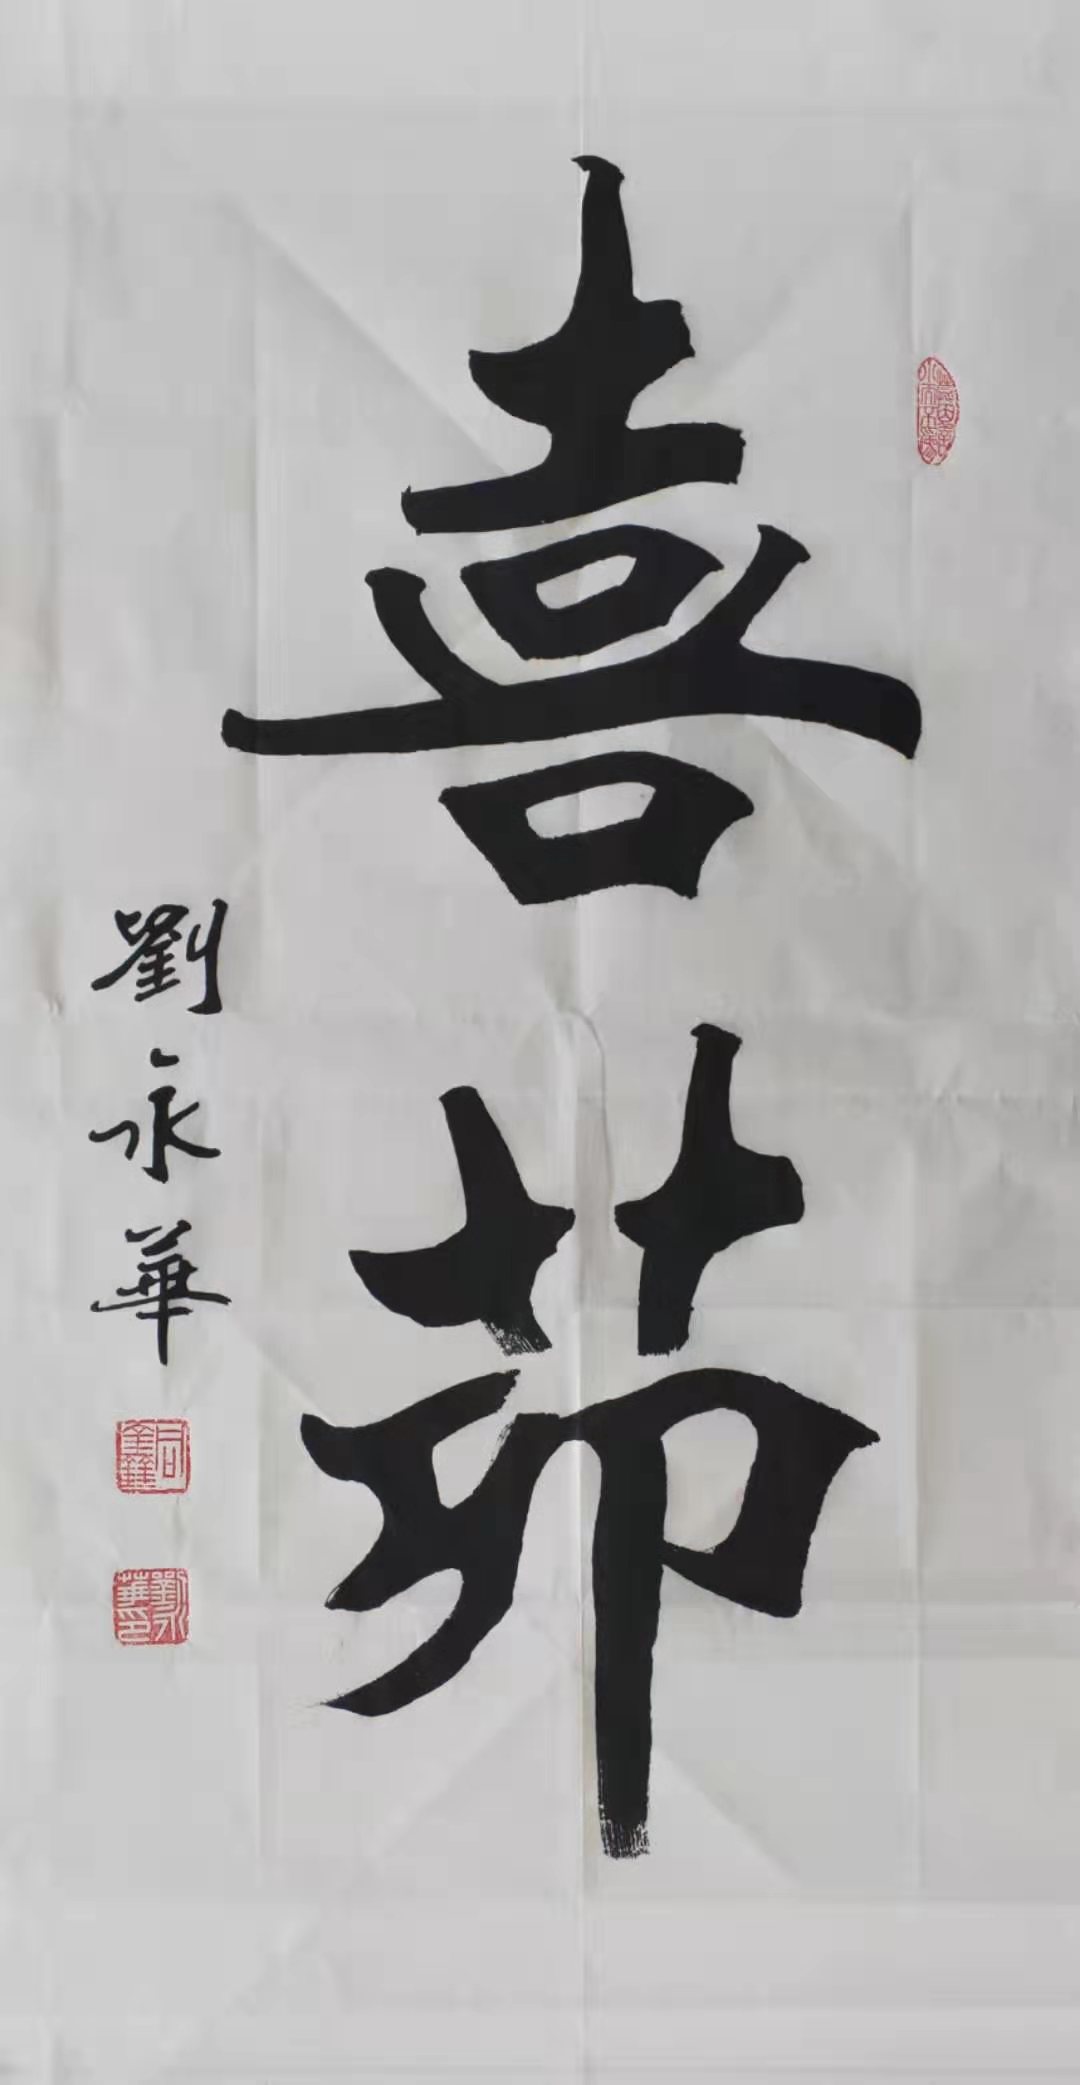 喜茆
劉永華
劉永華印